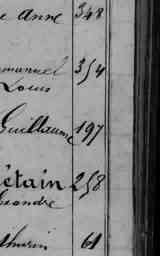 e Anne 348
manuel 354
Louis
Guillaume 197
étain 258
exandre
thurin 61